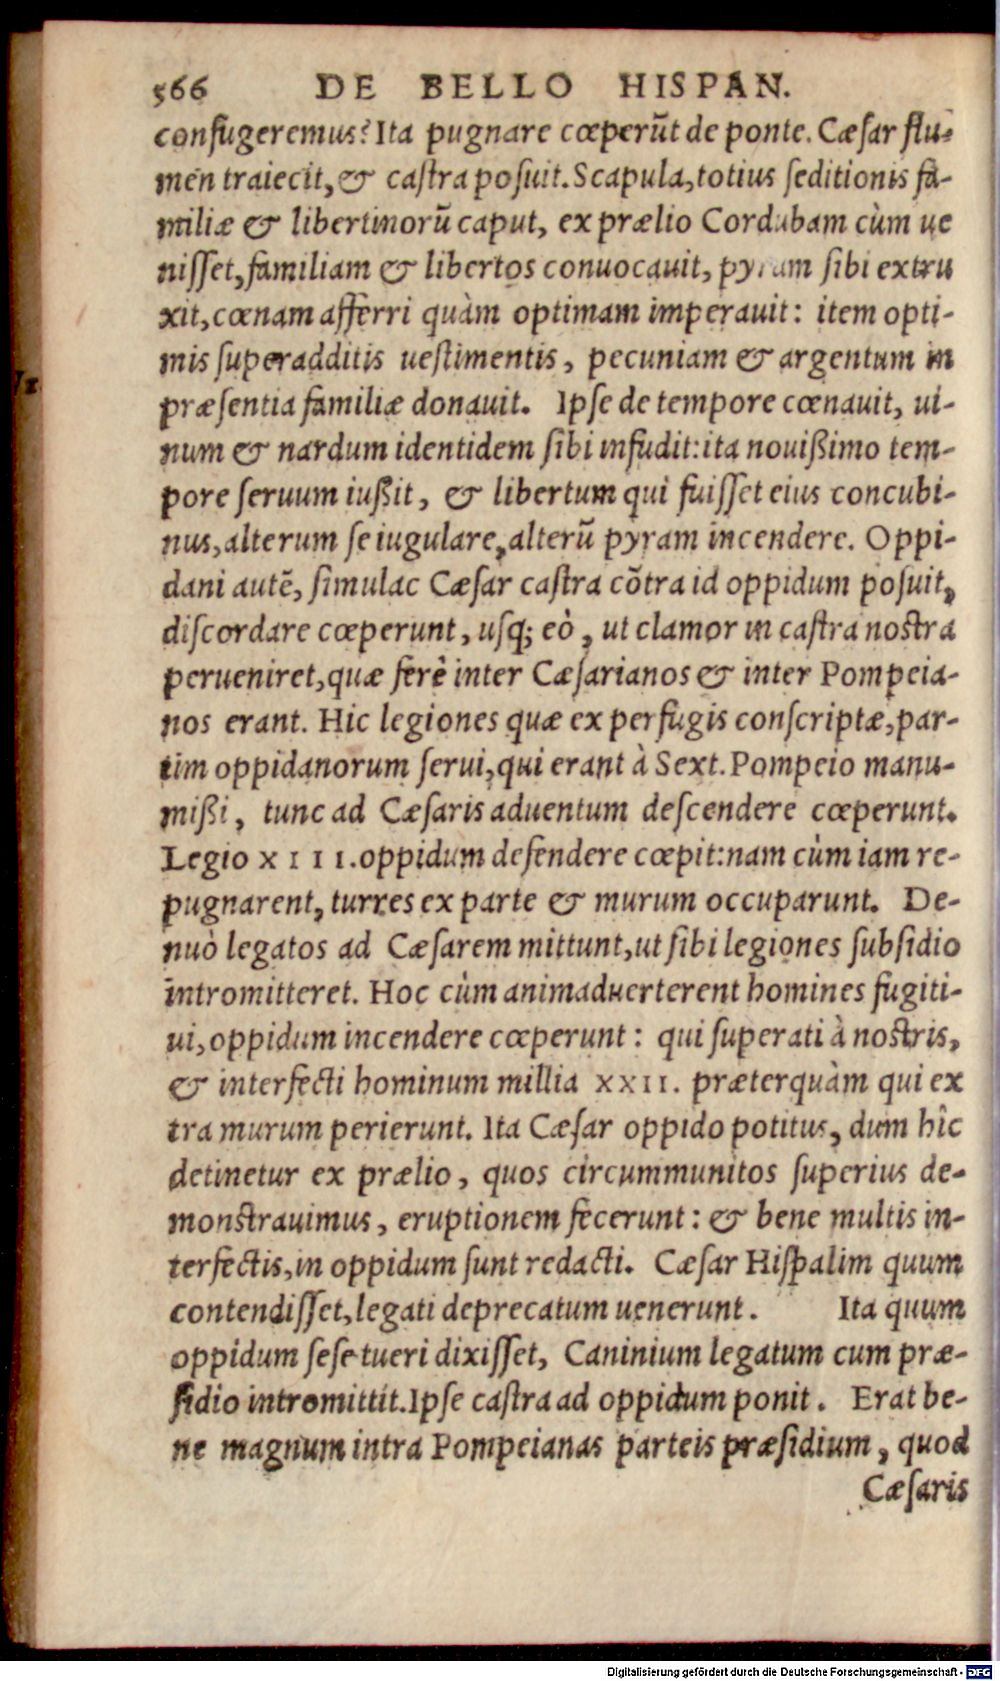 566 DE BELLO HISPAN.
confugeremus? Ita pugnare cœperũt de ponte. Cæſar flu-
men traiecit, & caſtra poſuit. Scapula, totius ſeditionis fa-
miliæ & libertinorũ caput, ex prælio Cordubam cùm ue
niſſet, familiam & libertos conuocauit, pyram ſibi extru
xit, cœnam afferri quàm optimam imperauit: item opti-
mis ſuperadditis ueſtimentis, pecuniam & argentum in
præſentia familiæ donauit. Ipſe de tempore cœnauit, ui-
num & nardum identidem ſibi infudit: ita nouißimo tem-
pore ſeruum iußit, & libertum qui fuiſſet eius concubi-
nus, alterum ſe iugulare, alterũ pyram incendere. Oppi-
dani autẽ, ſimulac Cæſar caſtra cõtra id oppidum poſuit,
diſcordare cœperunt, uſq; eò, ut clamor in caſtra noſtra
perueniret, quæ ferè inter Cæſarianos & inter Pompeia-
nos erant. Hic legiones quæ ex perfugis conſcriptæ, par-
tim oppidanorum ſerui, qui erant à Sext. Pompeio manu-
mißi, tunc ad Cæſaris aduentum deſcendere cœperunt.
Legio XIII. oppidum defendere cœpit: nam cùm iam re-
pugnarent, turres ex parte & murum occuparunt. De-
nuò legatos ad Cæſarem mittunt, ut ſibi legiones ſubſidio
intromitteret. Hoc cùm animaduerterent homines fugiti-
ui, oppidum incendere cœperunt: qui ſuperati à noſtris,
& interfecti hominum millia XXII. præterquàm qui ex
tra murum perierunt. Ita Cæſar oppido potitus, dum hîc
detinetur ex prælio, quos circummunitos ſuperius de-
monſtrauimus, eruptionem fecerunt: & bene multis in-
terfectis, in oppidum ſunt redacti. Cæſar Hiſpalim quum
contendiſſet, legati deprecatum uenerunt. Ita quum
oppidum ſeſe tueri dixiſſet, Caninium legatum cum præ-
ſidio intromittit. Ipſe caſtra ad oppidum ponit. Erat be-
ne magnum intra Pompeianas parteis præſidium, quod
Cæſaris
Digitalisierung gefördert durch die Deutsche Forschungsgemeinschaft - DFG